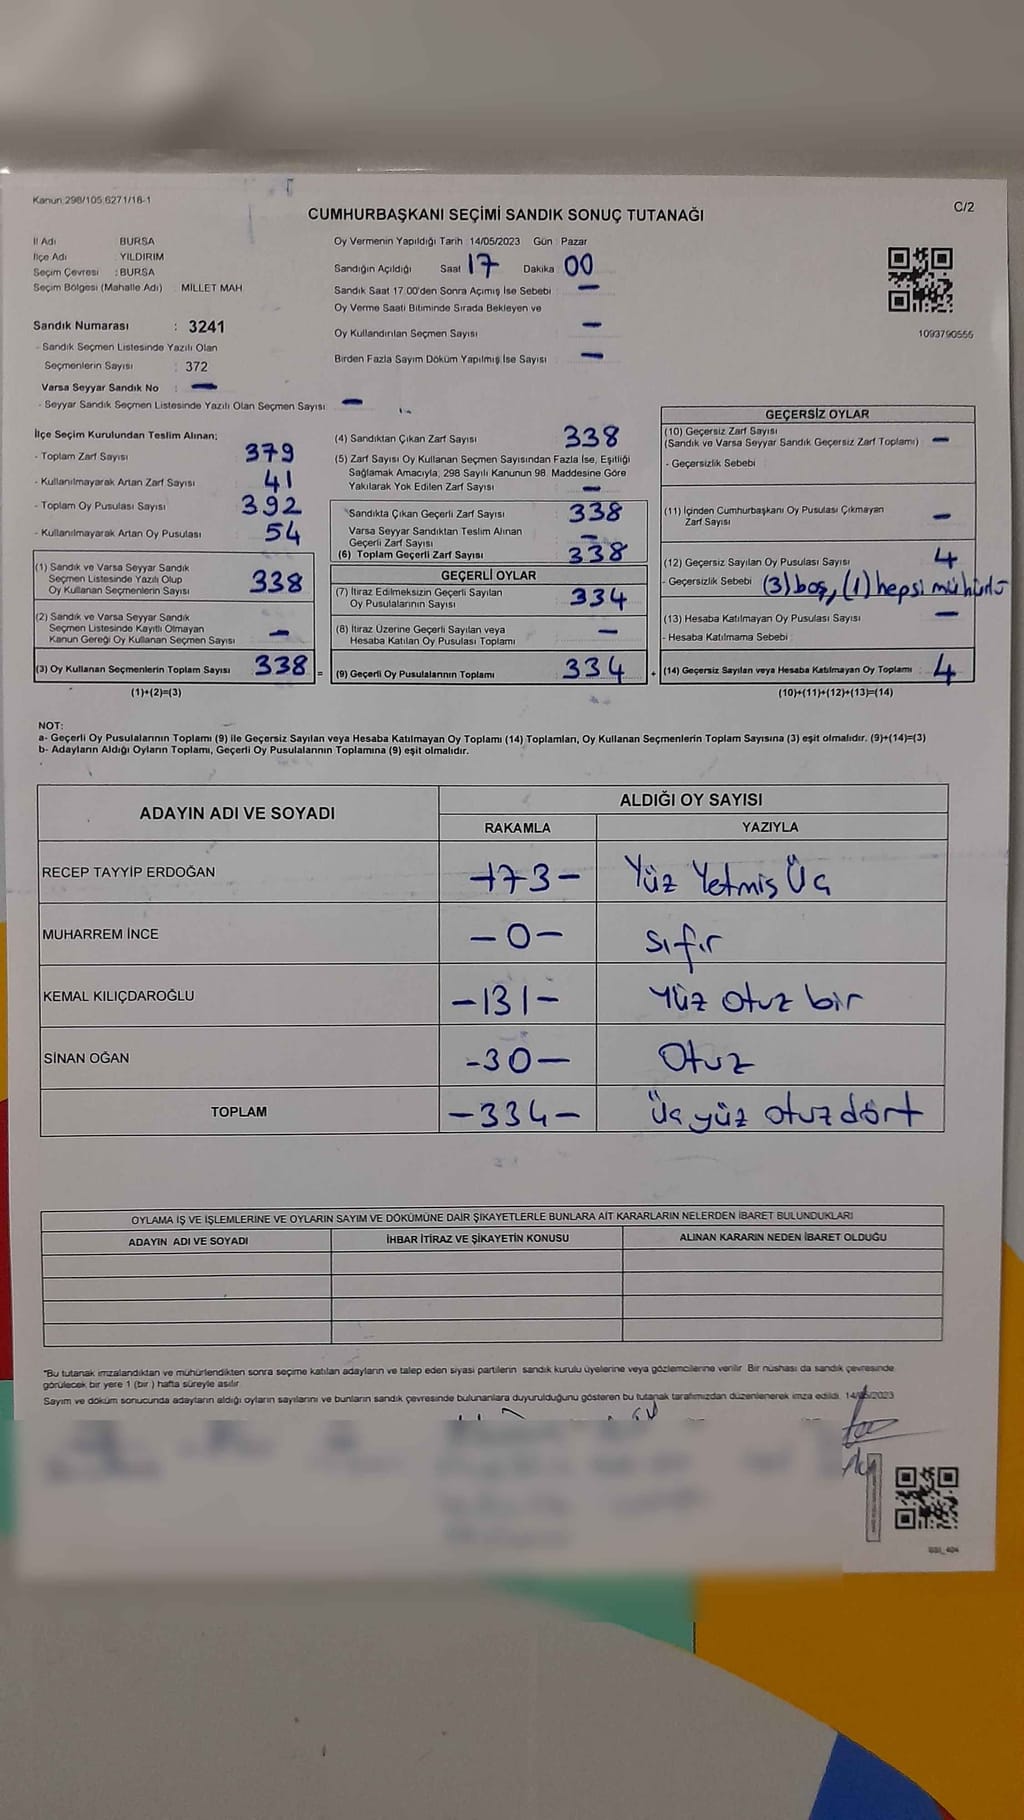 Kanun:298/105,6271/18-1
C/2
CUMHURBAŞKANI SEÇİMİ SANDIK SONUÇ TUTANAĞI
İl Adı BURSA
İlçe Adı YILDIRIM
Seçim Çevresi : BURSA
Seçim Bölgesi (Mahalle Adı) : MİLLET MAH
Sandık Numarası : 3241
- Sandık Seçmen Listesinde Yazılı Olan
Seçmenlerin Sayısı : 372
Varsa Seyyar Sandık No : —
- Seyyar Sandık Seçmen Listesinde Yazılı Olan Seçmen Sayısı: —
Oy Vermenin Yapıldığı Tarih :14/05/2023 Gün : Pazar
Sandığın Açıldığı Saat 17 Dakika 00
Sandık Saat 17:00'den Sonra Açımış İse Sebebi : —
Oy Verme Saati Bitiminde Sırada Bekleyen ve
Oy Kullandırılan Seçmen Sayısı —
Birden Fazla Sayım Döküm Yapılmış İse Sayısı —
1093790555
İlçe Seçim Kurulundan Teslim Alınan;
- Toplam Zarf Sayısı 379
- Kullanılmayarak Artan Zarf Sayısı 41
- Toplam Oy Pusulası Sayısı 392
- Kullanılmayarak Artan Oy Pusulası 54
(1) Sandık ve Varsa Seyyar Sandık
Seçmen Listesinde Yazılı Olup
Oy Kullanan Seçmenlerin Sayısı 338
(2) Sandık ve Varsa Seyyar Sandık
Seçmen Listesinde Kayıtlı Olmayan
Kanun Gereği Oy Kullanan Seçmen Sayısı —
(3) Oy Kullanan Seçmenlerin Toplam Sayısı 338 =
(1)+(2)=(3)
(4) Sandıktan Çıkan Zarf Sayısı 338
(5) Zarf Sayısı Oy Kullanan Seçmen Sayısından Fazla İse, Eşitliği
Sağlamak Amacıyla, 298 Sayılı Kanunun 98. Maddesine Göre
Yakılarak Yok Edilen Zarf Sayısı —
Sandıkta Çıkan Geçerli Zarf Sayısı 338
Varsa Seyyar Sandıktan Teslim Alınan
Geçerli Zarf Sayısı —
(6) Toplam Geçerli Zarf Sayısı 338
GEÇERLİ OYLAR
(7) İtiraz Edilmeksizin Geçerli Sayılan
Oy Pusulalarının Sayısı 334
(8) İtiraz Üzerine Geçerli Sayılan veya
Hesaba Katılan Oy Pusulası Toplamı —
(9) Geçerli Oy Pusulalarının Toplamı 334 +
GEÇERSİZ OYLAR
(10) Geçersiz Zarf Sayısı
(Sandık ve Varsa Seyyar Sandık Geçersiz Zarf Toplamı) —
- Geçersizlik Sebebi
(11) İçinden Cumhurbaşkanı Oy Pusulası Çıkmayan
Zarf Sayısı —
(12) Geçersiz Sayılan Oy Pusulası Sayısı 4
- Geçersizlik Sebebi (3) boş, (1) hepsi mühürlü
(13) Hesaba Katılmayan Oy Pusulası Sayısı —
- Hesaba Katılmama Sebebi
(14) Geçersiz Sayılan veya Hesaba Katılmayan Oy Toplamı : 4
(10)+(11)+(12)+(13)=(14)
NOT:
a- Geçerli Oy Pusulalarının Toplamı (9) ile Geçersiz Sayılan veya Hesaba Katılmayan Oy Toplamı (14) Toplamları, Oy Kullanan Seçmenlerin Toplam Sayısına (3) eşit olmalıdır. (9)+(14)=(3)
b- Adayların Aldığı Oyların Toplamı, Geçerli Oy Pusulalarının Toplamına (9) eşit olmalıdır.
ADAYIN ADI VE SOYADI ALDIĞI OY SAYISI
RAKAMLA YAZIYLA
RECEP TAYYİP ERDOĞAN -173- Yüz Yetmiş Üç
MUHARREM İNCE -0- sıfır
KEMAL KILIÇDAROĞLU -131- Yüz otuz bir
SİNAN OĞAN -30- Otuz
TOPLAM -334- Üç yüz otuz dört
OYLAMA İŞ VE İŞLEMLERİNE VE OYLARIN SAYIM VE DÖKÜMÜNE DAİR ŞİKAYETLERLE BUNLARA AİT KARARLARIN NELERDEN İBARET BULUNDUKLARI
ADAYIN ADI VE SOYADI İHBAR İTİRAZ VE ŞİKAYETİN KONUSU ALINAN KARARIN NEDEN İBARET OLDUĞU
*Bu tutanak imzalandıktan ve mühürlendikten sonra seçime katılan adayların ve talep eden siyasi partilerin sandık kurulu üyelerine veya gözlemcilerine verilir. Bir nüshası da sandık çevresinde
görülecek bir yere 1 (bir) hafta süreyle asılır.
Sayım ve döküm sonucunda adayların aldığı oyların sayılarını ve bunların sandık çevresinde bulunanlara duyurulduğunu gösteren bu tutanak tarafımızdan düzenlenerek imza edildi. 14/05/2023